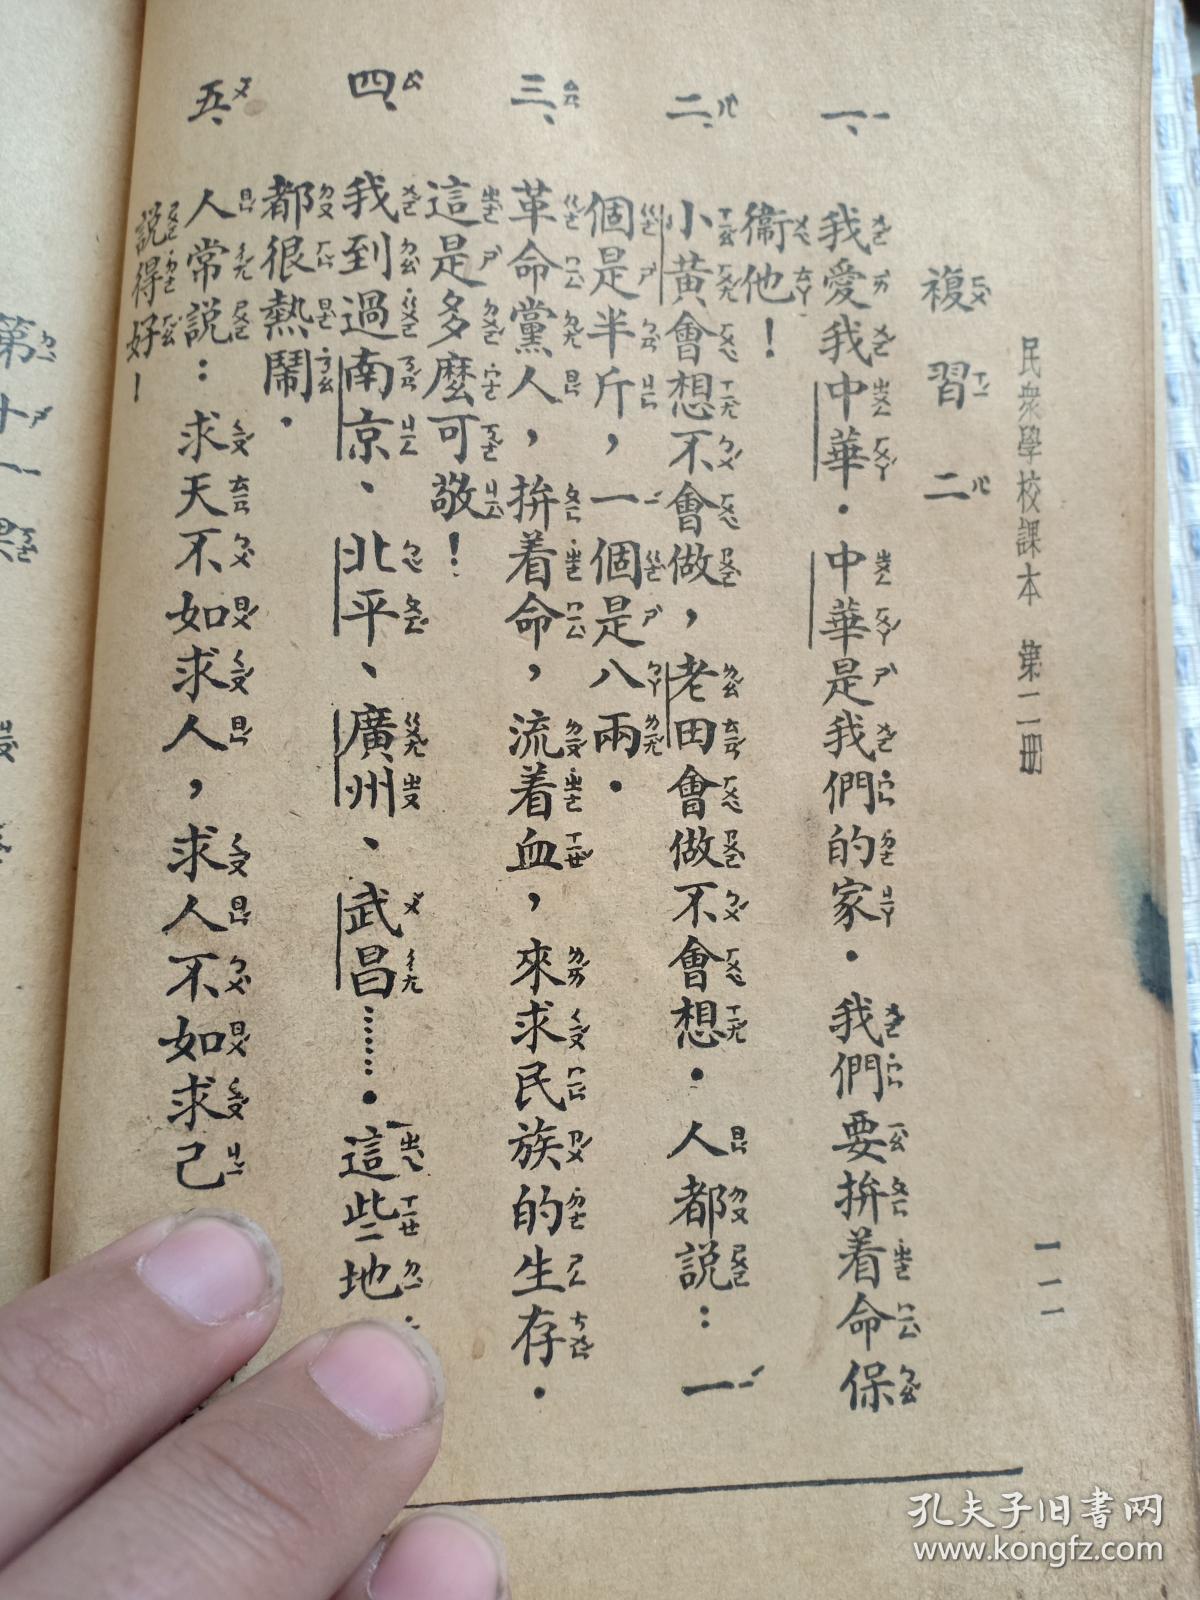 民衆學校課本 第二冊
一一一
複習二
一、我愛我中華．中華是我們的家．我們要拚着命保
衞他！
二、小黃會想不會做，老田會做不會想．人都説：一
個是半斤，一個是八兩．
三、革命黨人，拚着命，流着血，來求民族的生存．
這是多麼可敬！
四、我到過南京、北平、廣州、武昌……．這些地
都很熱鬧．
五、人常説：求天不如求人，求人不如求己
説得好！
第十一
孔夫子旧书网
www.kongfz.com